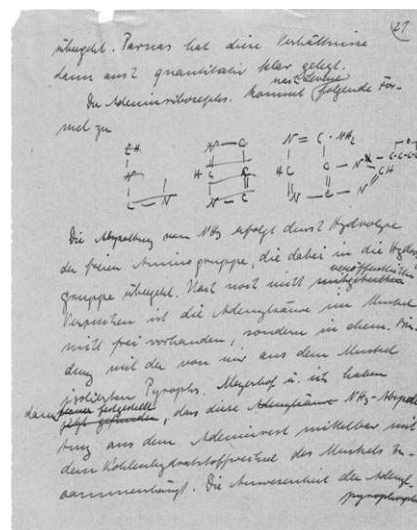 27
übergeht. Parnas hat diese Verhältnisse
dann auch quantitativ klar gelegt.
nach Levene
Der Adenin kommt folgende For-
mel zu
CH N—C N = C · NH₂
N HC C HC C — N C-C-C-C
C — N N—C N — C — N CH
Die Abspaltung von NH₃ erfolgt durch Hydrolyse
der freien Aminogruppe, die dabei in die Hydroxyl
gruppe übergeht. Nach noch nicht mitgeteilten veröffentlichten
Versuchen ist die Adenylsäure im Muskel
nicht frei vorhanden, sondern in chem. Bin-
dung mit der von mir aus dem Muskel
isolierten Pyrophs. Meyerhof u. ich haben
dann ferner festgestellt
jetzt gefunden, dass diese Adenylsäure NH₃-Abspal
tung aus dem Adeninrest mittelbar mit
dem Kohlenhydratstoffwechsel des Muskels zu-
sammenhängt. Die Anwesenheit der Adenyl-
pyrophosphor